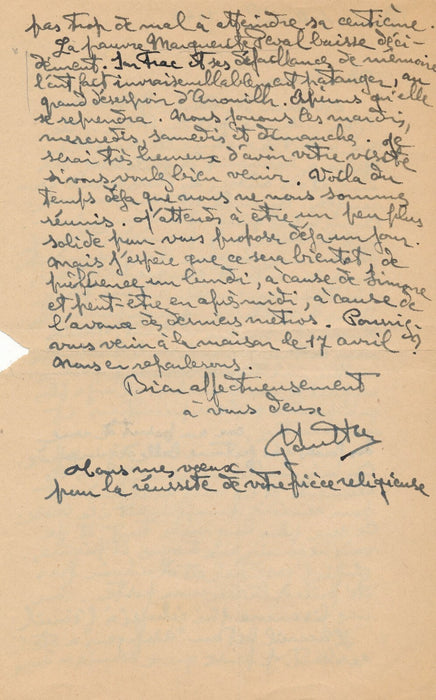 pas trop de mal à atteindre sa centième.
La pauvre Marguerite Jeval baisse déci-
dément. Son trac et ses défaillances de mémoire
l'ont fait invraisemblable, et patauger, au
grand désespoir d'Anouilh. Espérons qu'elle
se reprendra. Nous jouons les mardis,
mercredis, samedis et dimanches. Je
serai très heureux d'avoir votre visite
si vous voulez bien venir. Voilà du
temps déjà que nous ne nous sommes
réunis. J'attends à être un peu plus
solide pour vous proposer déjà un jour.
Mais j'espère que ce sera bientôt de
préférence un lundi, à cause de Simone
et peut-être en après midi, à cause de
l'avance des derniers métros. Pourriez
vous venir à la maison le 17 avril ?
Nous en reparlerons.
Bien affectueusement
à vous deux
Tous mes vœux
pour la réussite de votre pièce religieuse